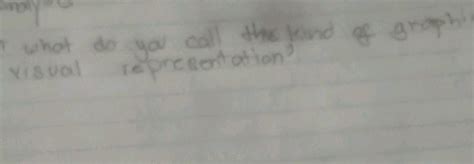 what do you call the kind of graphi
visual representation?